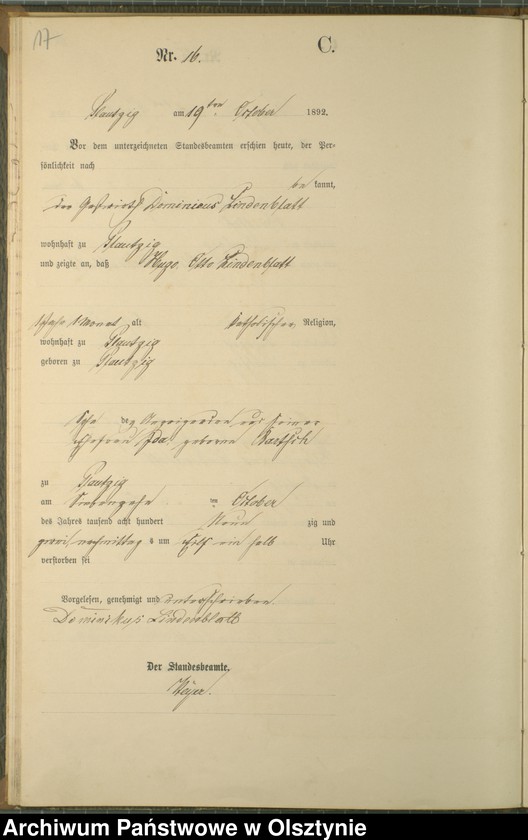 17
C.
Nr. 16.
Plautzig am 19ten October 1892.
Vor dem unterzeichneten Standesbeamten erschien heute, der Per-
sönlichkeit nach
be kannt,
der Gastwirth Dominicus Lindenblatt
wohnhaft zu Plautzig
und zeigte an, daß Hugo Otto Lindenblatt
1 Jahr 1 Monat alt katholischer Religion,
wohnhaft zu Plautzig
geboren zu Plautzig
Sohn des Anzeigenden und seiner
Ehefrau Ida geborene
zu Plautzig
am Siebenzehn ten October
des Jahres tausend acht hundert Neun zig und
zwei nachmittags um ein halb Uhr
verstorben sei
Vorgelesen, genehmigt und unterschrieben
Dominikus Lindenblatt
Der Standesbeamte.
Archiwum Państwowe w Olsztynie